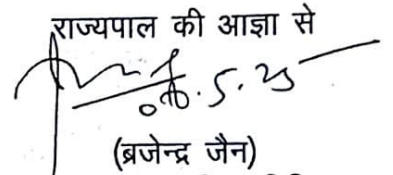 राज्यपाल की आज्ञा से
06.5.25
(ब्रजेन्द्र जैन)